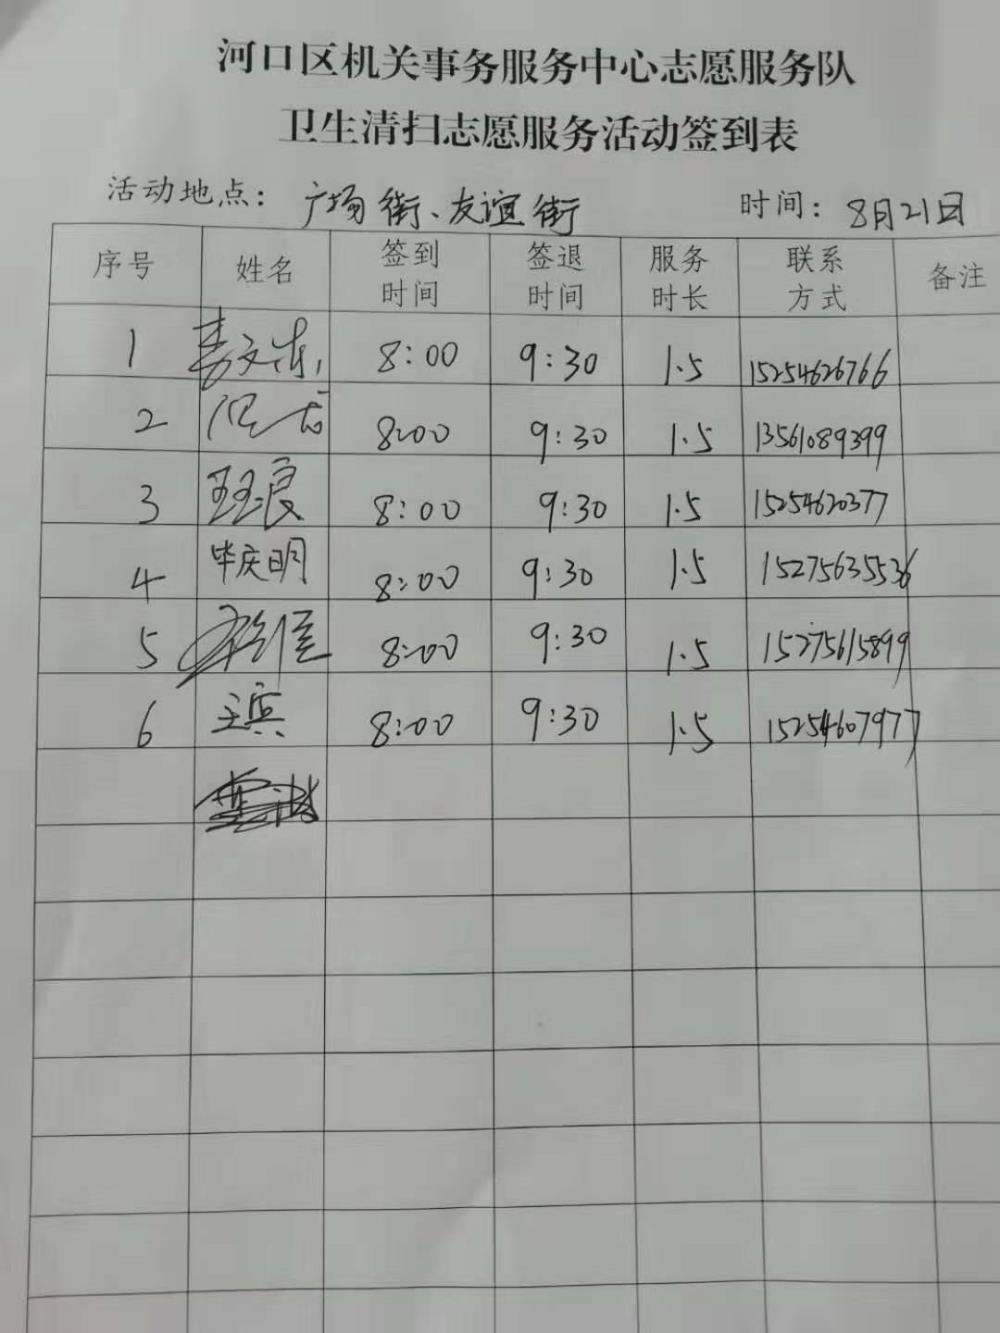 河口区机关事务服务中心志愿服务队
卫生清扫志愿服务活动签到表
活动地点：广场街、友谊街 时间：8月21日
序号 姓名 签到时间 签退时间 服务时长 联系方式 备注
1 8:00 9:30 1.5 15254626766
2 8:00 9:30 1.5 13561089399
3 8:00 9:30 1.5 15254620377
4 毕庆明 8:00 9:30 1.5 15275635536
5 8:00 9:30 1.5 15275615899
6 王宾 8:00 9:30 1.5 15254607977